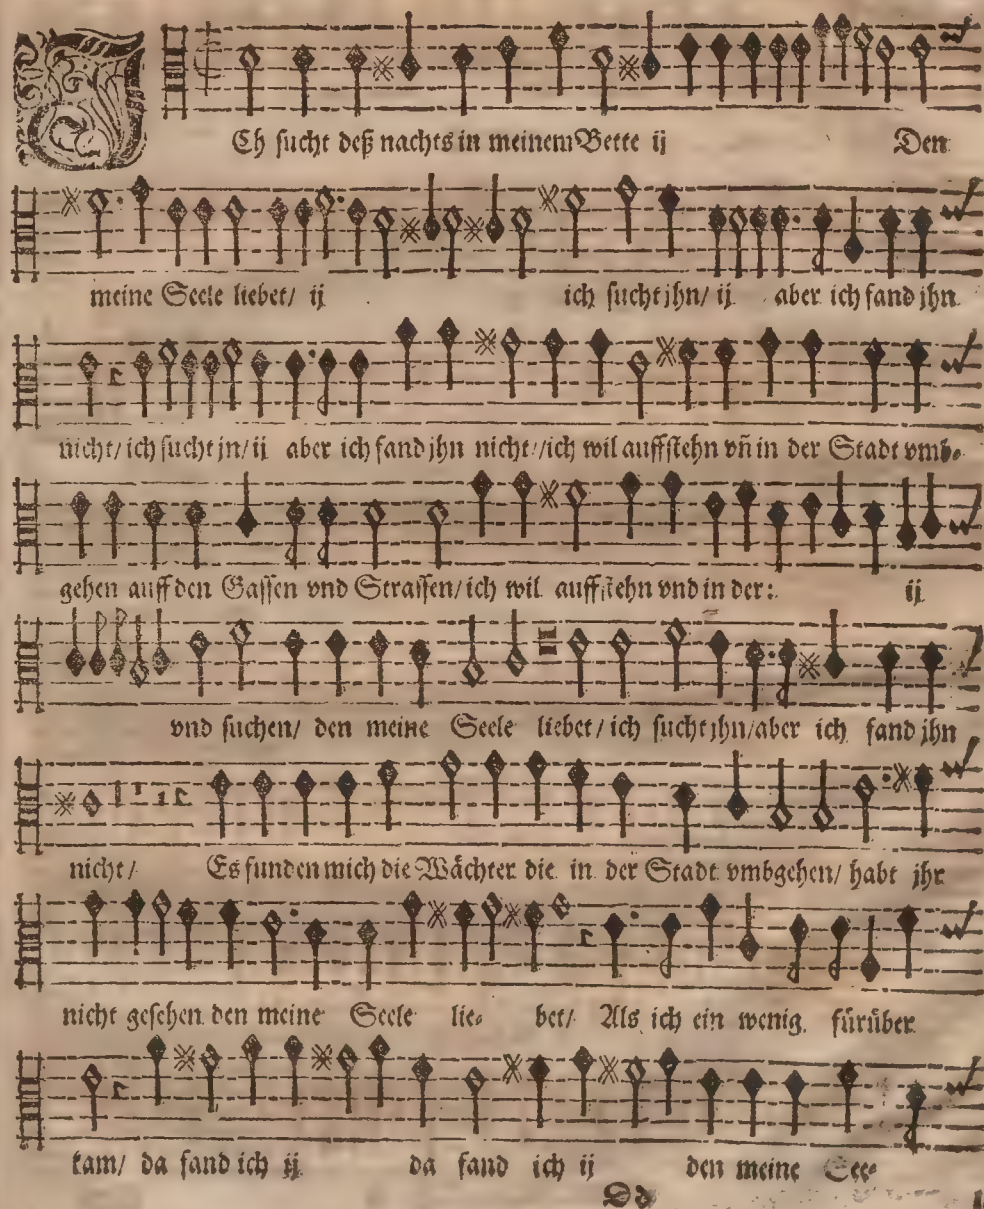 ICh sucht deß nachts in meinem Bette ij Den
meine Seele liebet/ ij ich sucht jhn/ ij aber ich fand jhn
nicht/ ich sucht jn/ ij aber ich fand jhn nicht/ /ich wil auffstehn vñ in der Stadt vmb⸗
gehen auff den Gassen vnd Strassen/ ich wil auffstehn vnd in der: ij
vnd suchen/ den meine Seele liebet/ ich sucht jhn/ aber ich fand jhn
nicht/ Es funden mich die Wächter die in der Stadt vmbgehen/ habt jhr
nicht gesehen den meine Seele lie⸗ bet/ Als ich ein wenig fürüber
kam/ da fand ich ij da fand ich ij den meine See⸗
Dd